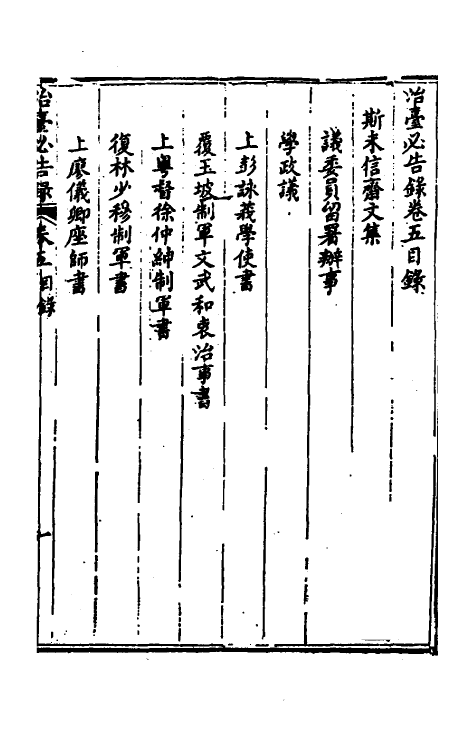 治臺必告錄卷五目錄
斯未信齋文集
議委員留署辦事
學政議
上彭詠莪學使書
覆玉坡制軍文武和衷治事書
上粵督徐仲紳制軍書
復林少穆制軍書
上廖儀卿座師書
治臺必告錄 卷五目錄 一